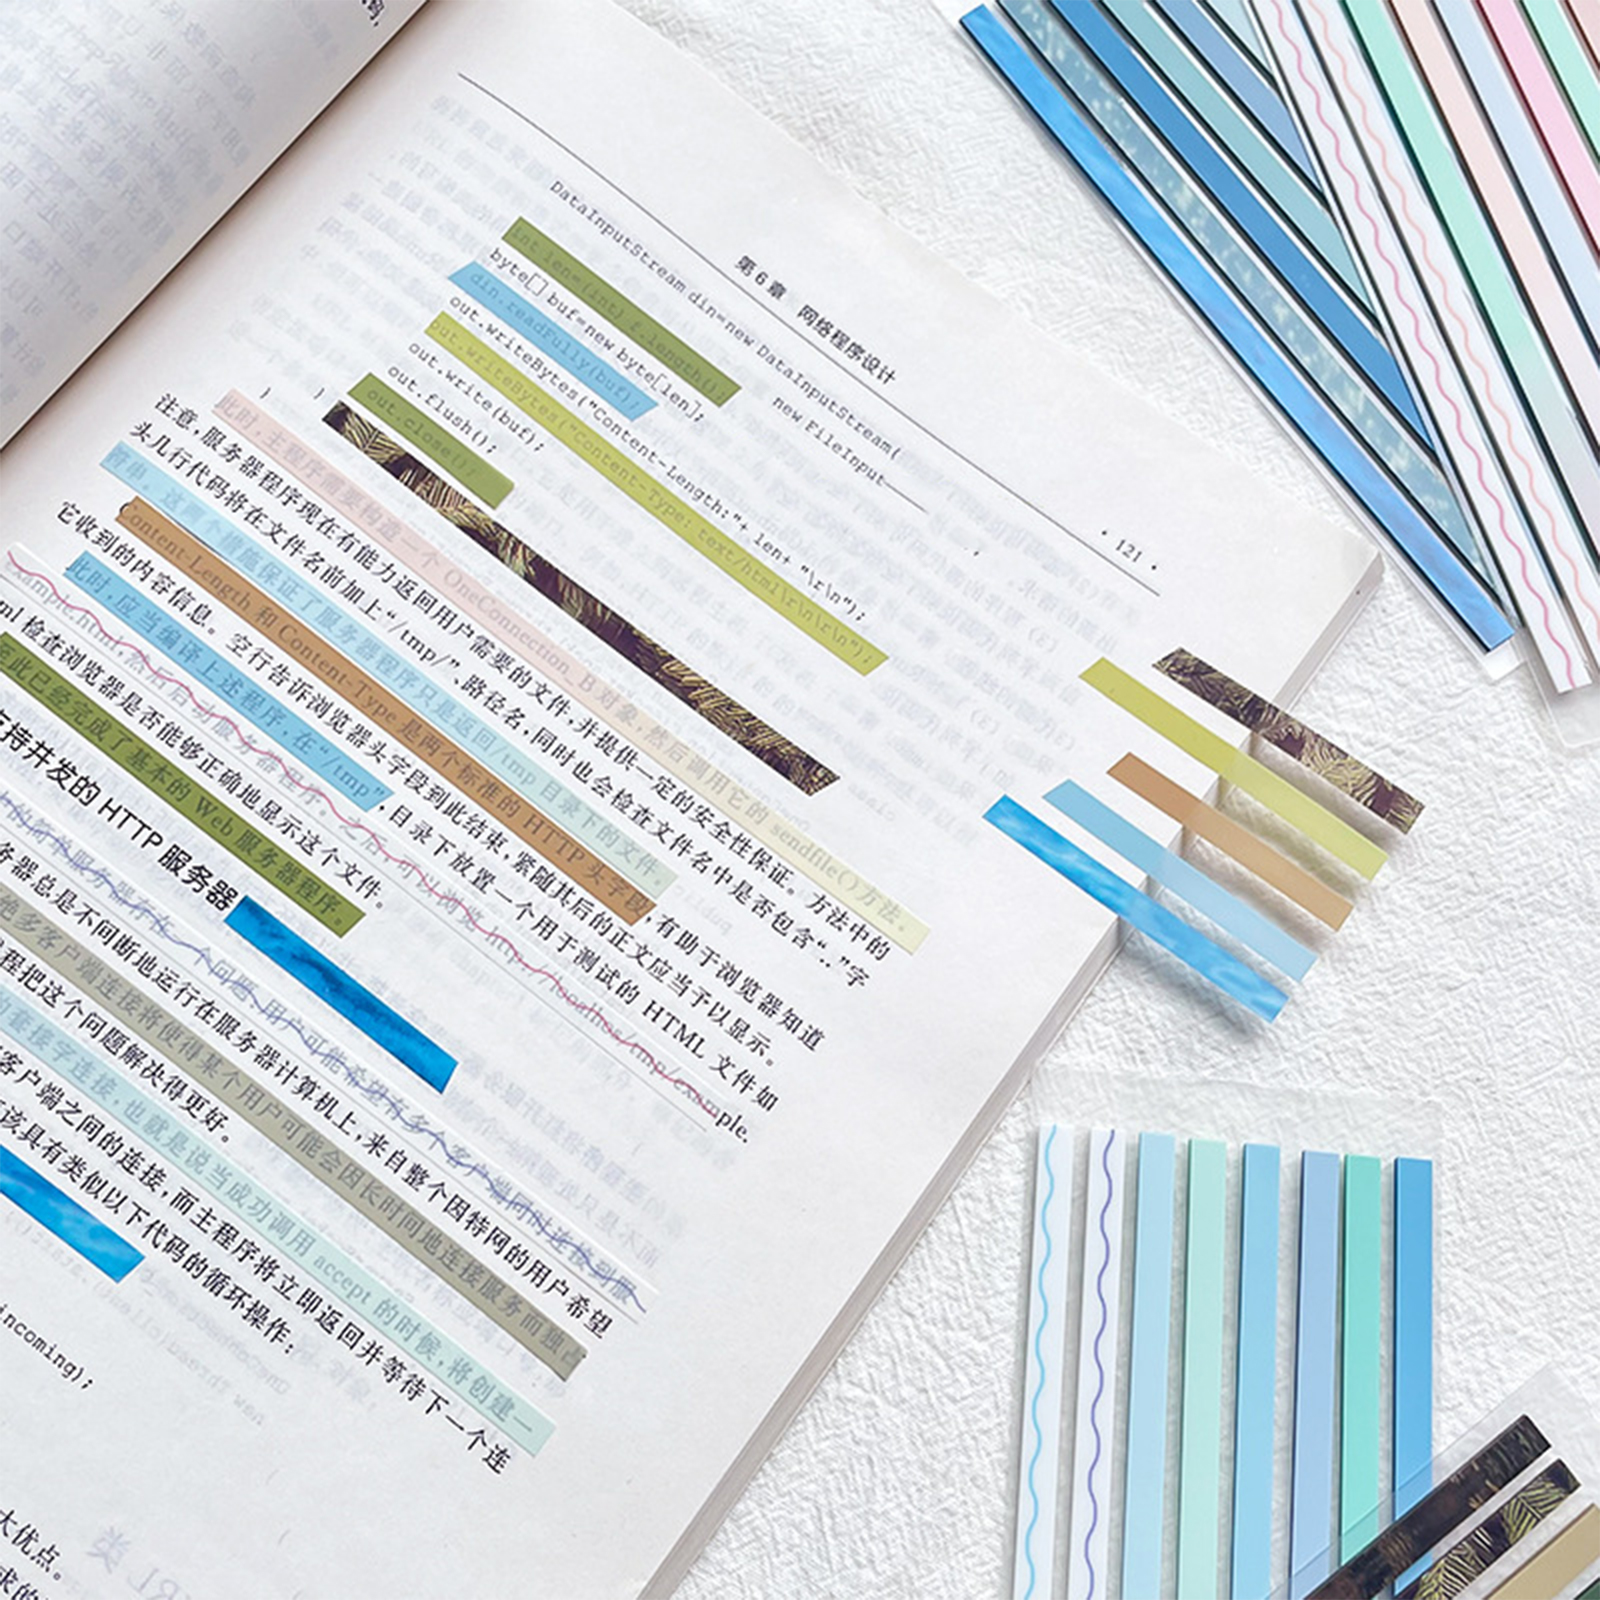 第 6 章　网络程序设计
· 121 ·
DataInputStream din=new DataInputStream(
new FileInput
int len=(int) f.length();
byte[] buf=new byte[len];
din.readFully(buf);
out.writeBytes("Content-Length:"+ len+ "\r\n");
out.writeBytes("Content-Type: text/html\r\n\r\n");
out.write(buf);
out.flush();
out.close();
}
}
此时,主程序需要构造一个 OneConnection_B 对象,然后调用它的 sendfile()方法。
注意,服务器程序现在有能力返回用户需要的文件,并提供一定的安全性保证。方法中的
头几行代码将在文件名前加上“/tmp/”、路径名,同时也会检查文件名中是否包含“..”字
简单。这两个措施保证了服务器程序只是返回/tmp 目录下的文件。
Content-Length 和 Content-Type 是两个标准的 HTTP 头字段,有助于浏览器知道
它收到的内容信息。空行告诉浏览器头字段到此结束,紧随其后的正文应当予以显示。
此时,应当编译上述程序,在“/tmp”,目录下放置一个用于测试的 HTML 文件如
example.html,然后启动服务器程序。之后可以浏览 http://localhost/tmp/example.
ml 检查浏览器是否能够正确地显示这个文件。
至此已经完成了基本的 Web 服务器程序。
支持并发的 HTTP 服务器
的简单服务器存在一个问题,用户可能希望有多个客户端同时连接到服
务器总是不间断地运行在服务器计算机上,来自整个因特网的用户希望
他多客户端连接将使得某个用户可能会因长时间地连接服务而独占
程把这个问题解决得更好。
的套接字连接,也就是说当成功调用 accept 的时候,将创建一
客户端之间的连接,而主程序将立即返回并等待下一个连
该具有类似以下代码的循环操作:
incoming);
大优点。
求的